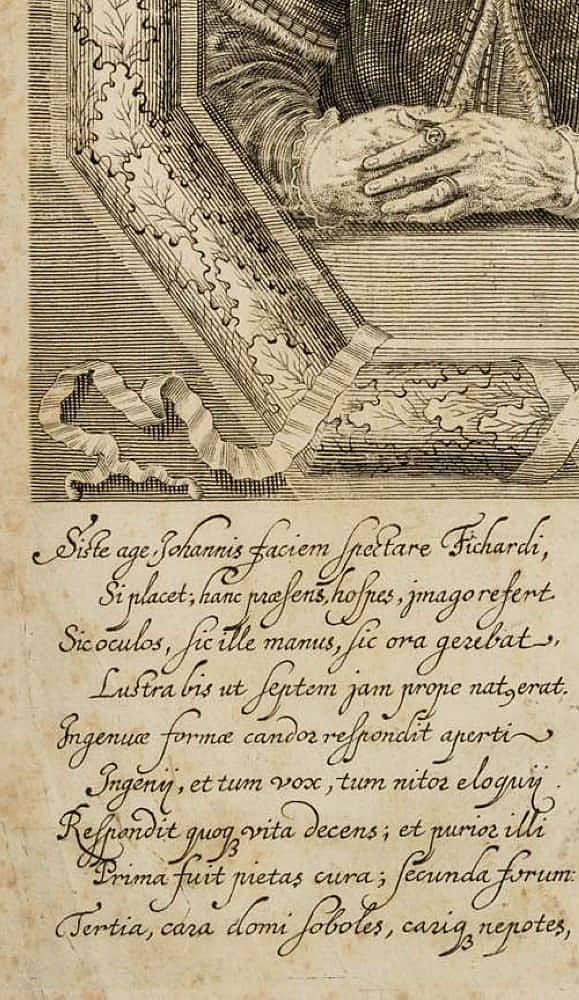 Siste age, Johannis faciem spectare Fichardi,
Si placet; hanc præsens, hospes, jmago refert
Sic oculos, sic ille manus, sic ora gerebat,
Lustra bis ut septem jam prope natꝰ erat.
Ingenuæ formæ candor respondit aperti
Ingenij, et tum vox, tum nitor eloquij.
Respondit quoqꝫ vita decens; et purior illi
Prima fuit pietas cura; secunda forum:
Tertia, cara domi soboles, cariqꝫ nepotes,